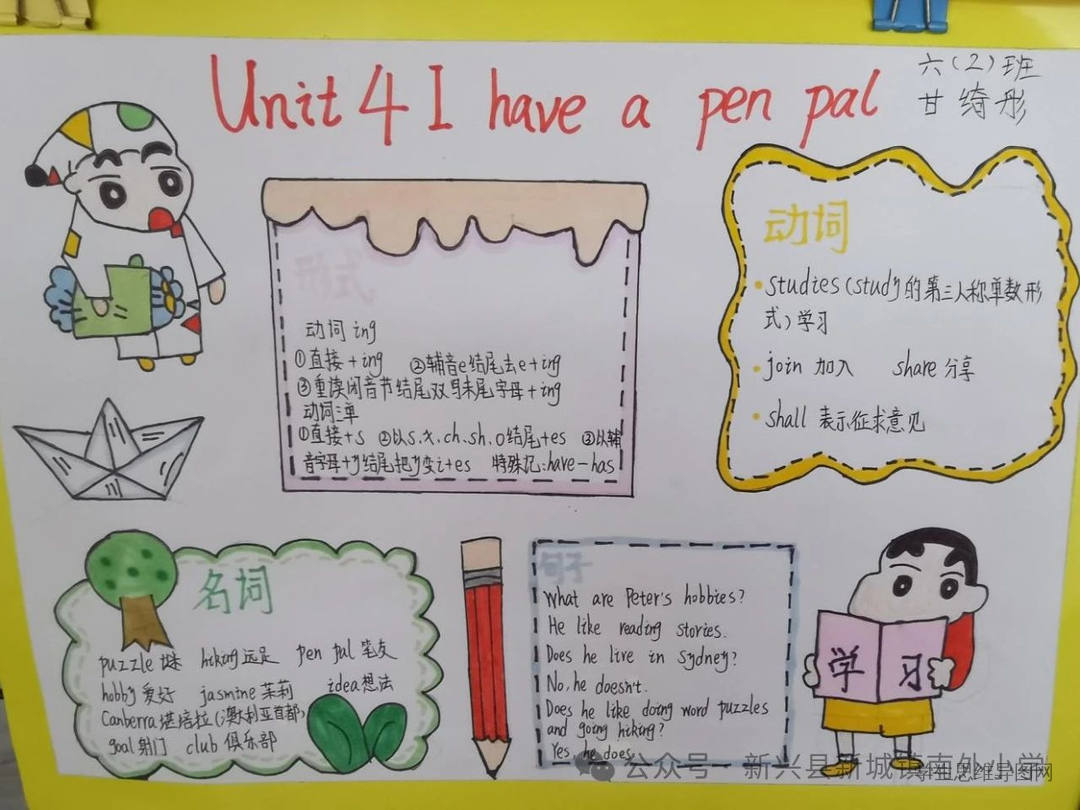 Unit 4 I have a pen pal
六(2)班
甘绮彤
形式
动词 ing
①直接+ing ②辅音e结尾去e+ing
③重读闭音节结尾双写末尾字母+ing
动词三单
①直接+s ②以s.x.ch.sh.o结尾+es ③以辅
音字母+y结尾把y变i+es 特殊记:have-has
动词
studies(study的第三人称单数形
式)学习
join 加入 share 分享
shall 表示征求意见
名词
puzzle 谜 hiking 远足 pen pal 笔友
hobby 爱好 jasmine 茉莉 idea 想法
Canberra 堪培拉(澳大利亚首都)
goal 射门 club 俱乐部
句子
What are Peter's hobbies?
He like reading stories.
Does he live in Sydney?
No, he doesn't.
Does he like doing word puzzles
and going hiking?
Yes he does.
学习
公众号·新兴县新城镇南外小学
思维导图网